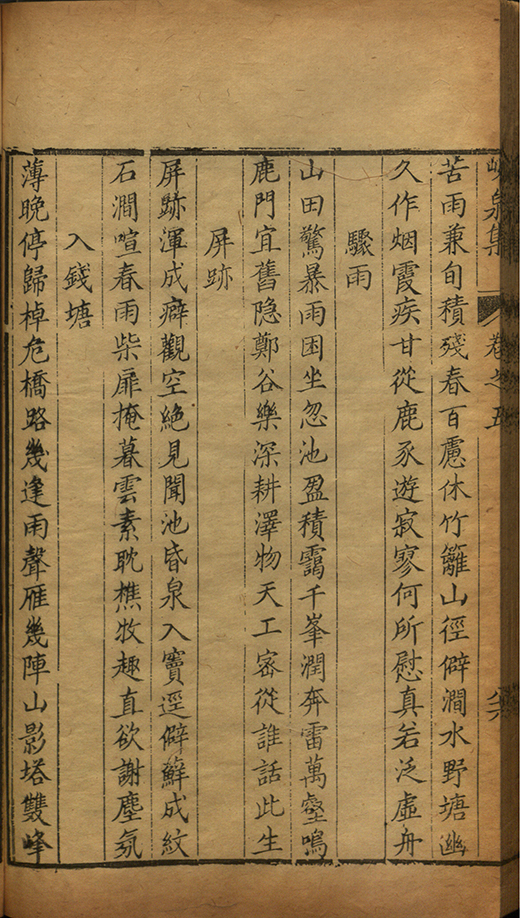 峴泉集 卷之五
苦雨兼旬積殘春百慮休竹籬山徑僻澗水野塘幽
久作烟霞疾甘從鹿豕遊寂寥何所慰真若泛虛舟
驟雨
山田驚暴雨困坐忽池盈積靄千峯潤奔雷萬壑鳴
鹿門宜舊隐鄭谷樂深耕澤物天工密從誰話此生
屏跡
屏跡渾成癖觀空絕見聞池昏泉入竇逕僻蘚成紋
石澗喧春雨柴扉掩暮雲素耽樵牧趣直欲謝塵氛
入錢塘
薄晚停歸棹危橋路幾逢雨聲雁幾陣山影塔雙峰